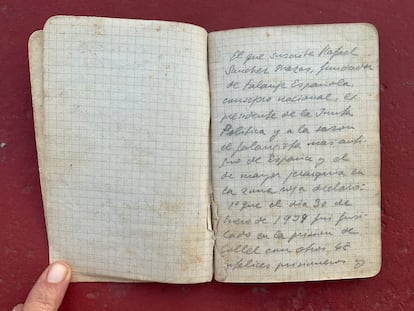 El que suscribe Rafael
Sanchez Mazas, fundador
de Falange Española,
consejero nacional, ex
presidente de la Junta
Politica y a la sazon
el falangista mas anti-
guo de España y el
de mayor jerarquia en
la zona roja declaro:
1º que el dia 30 de
Enero de 1939 fui fusi-
lado en la prision de
Collell con otros 48
infelices prisioneros y